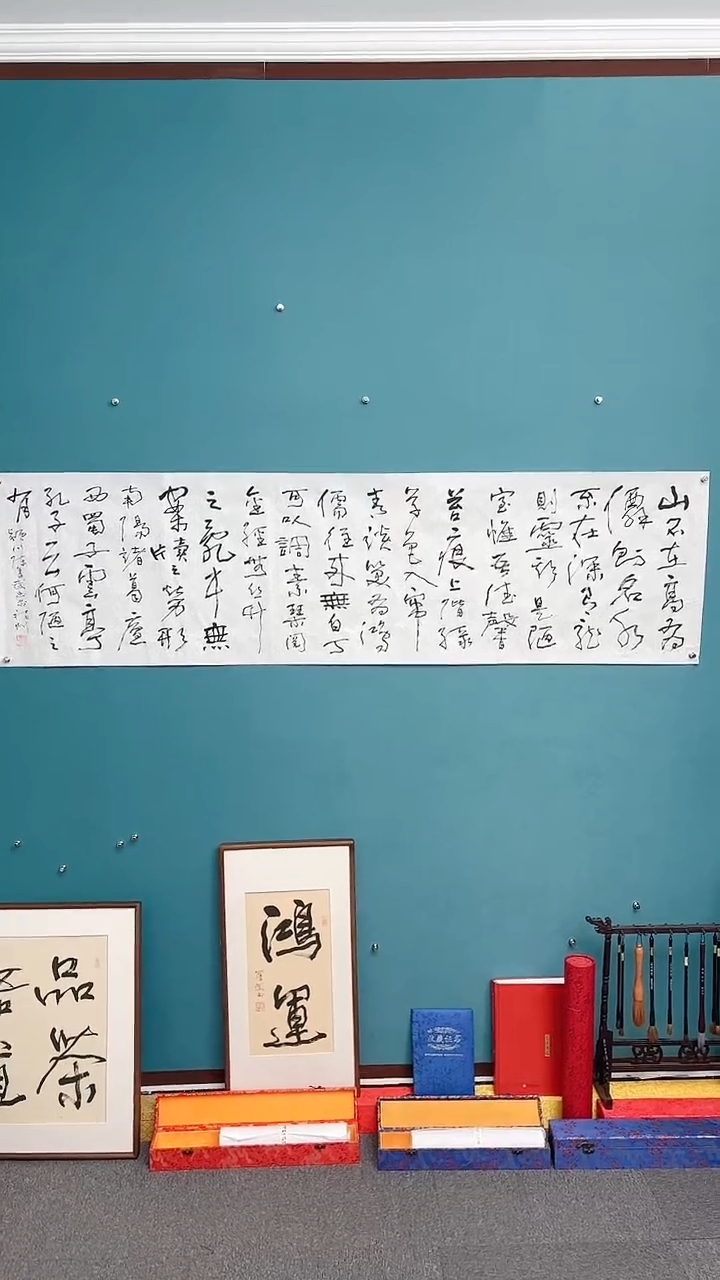 山不在高有
僊則名水
不在深有龍
則靈斯是陋
室惟吾德馨
苔痕上階綠
草色入簾
青談笑有鴻
儒往來無白丁
可以調素琴閱
金經無絲竹
之亂耳無
案牘之勞形
南陽諸葛廬
西蜀子雲亭
孔子云何陋之
有
鴻運
品茶
收藏证书